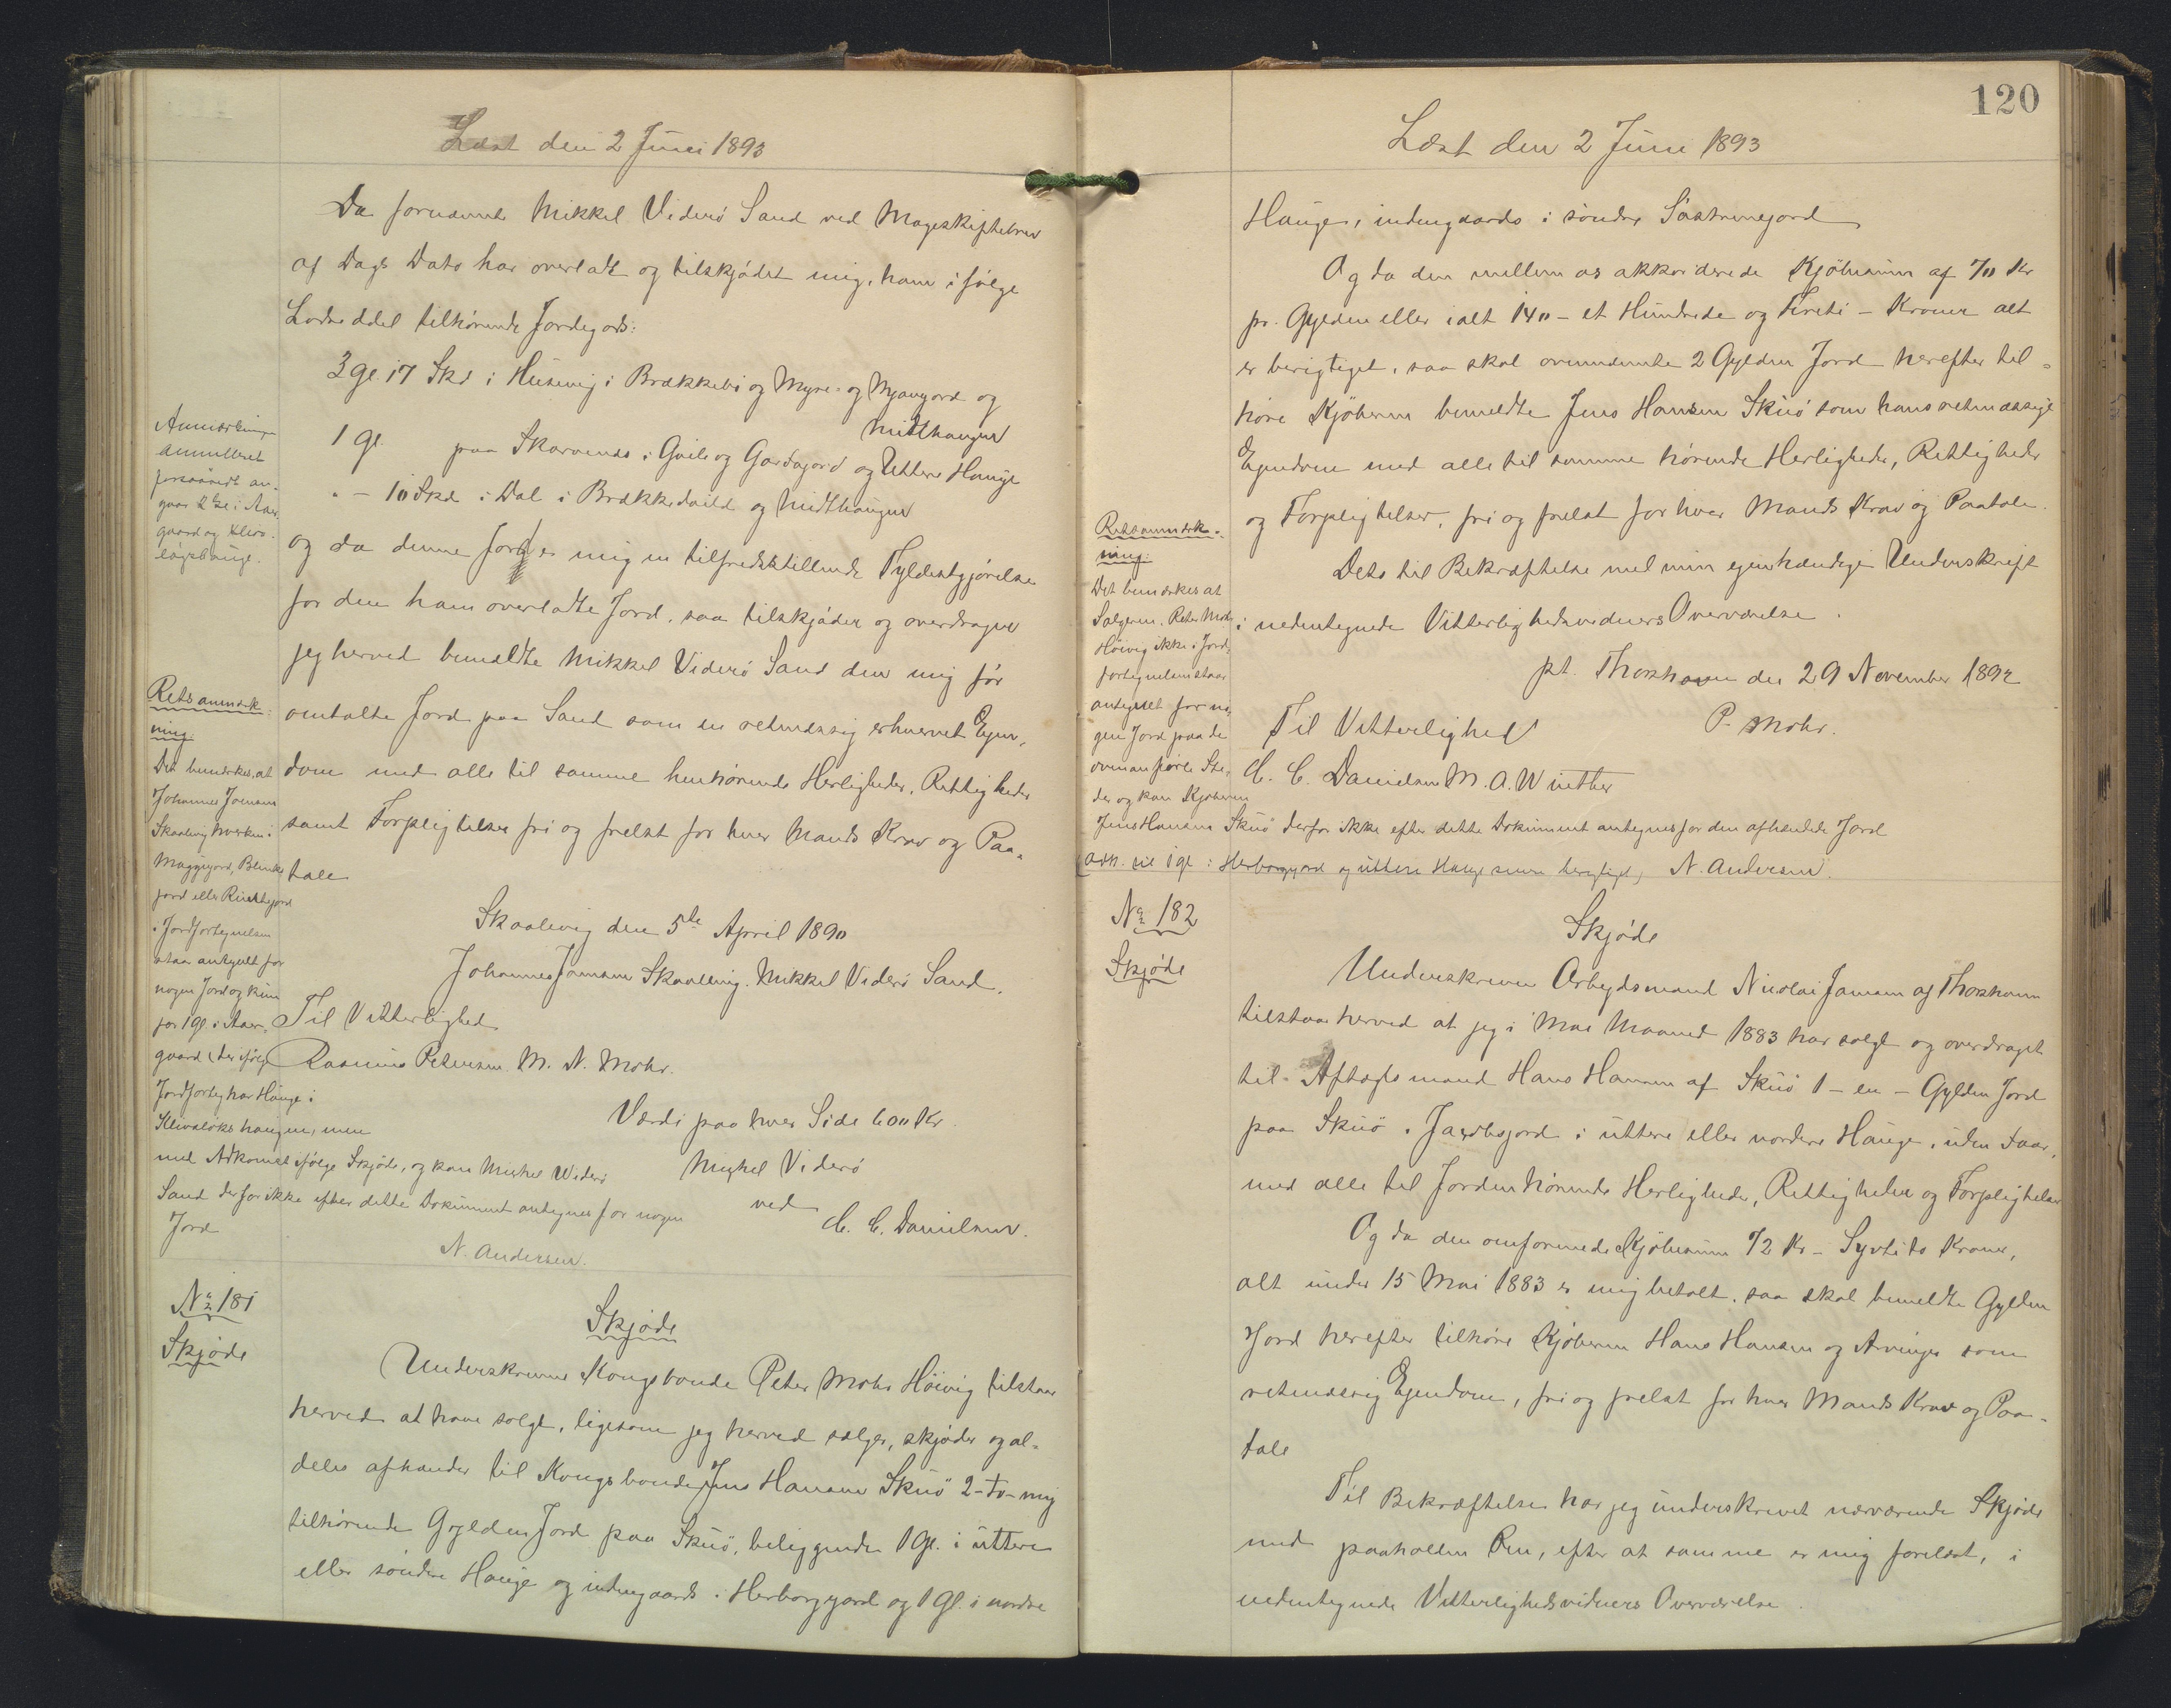 Læst den 2 Juni 1893
Da fornævnte Mikkel Viderö Sand ved Mageskiftebrev
af Dags Dato har overladt og tilskjødet mig, ham ifølge
Lodseddel tilhørende Jordegods:
3 gl. 17 Skd i Husevig i Brækkebö og Myre- og Myavgord og
Midthaugen
1 gl. paa Skarvenæs i Gaile og Gardagord og Uttere Hauge
" - 10 Skd i Dal i Brækkedaild og Midthaugen
og da denne Jord er mig en tilfredsstillende Fyldestgjørelse
for den ham overladte Jord, saa tilskjøder og overdrager
jeg herved bemeldte Mikkel Viderö Sand den mig før
omtalte Jord paa Sand som en retmæssig erhvervet Ejen-
dom med alle til samme henhørende Herligheder, Rettigheder
samt Forpligtelser fri og frelst for hver Mands Krav og Paa-
tale
Skaalevig den 5te April 1890
Johannes Joensen Skaalevig. Mikkel Viderö Sand.
Til Vitterlighed
Rasmus Petersen. M. N. Mohr.
Værdi paa hver Side 600 Kr
Michel Viderö
ved
C. C. Danielsen.
Anmærkning
annulleret
forsaavidt an-
gaar 2 gl. i Aar-
gaard og Kliva-
løgshauge.
Retsanmærk-
ning.
Det bemærkes, at
Johannes Joensen
Skaalevig hverken i
Muggegord, Blinke
jord eller Rinktegord
i Jordfortegnelsen
staar antegnet for
nogen Jord og kun
for 1 gl. i Aar-
gaard (der ifølge
Jordforteg har Hauge i
Klivaløks haugen, men
med Adkomst ifølge Skjøde, og kan Michel Viderö
Sand derfor ikke efter dette Dokument antegnes for nogen
Jord
N. Andersen.
No 181
Skjøde
Skjøde
Underskrevne Kongsbonde Peter Mohr Höivig tilstaar
herved at have solgt, ligesom jeg herved sælger, skjøder og al-
deles afhænder til Kongsbonde Jens Hansen Skuö 2 - to - mig
tilhørende Gylden Jord paa Skuö, beliggende 1 gl. i uttere
eller søndre Hauge og indengaards i Herborggord og 1 Gl. i nordre
120
Læst den 2 Juni 1893
Hauge, indengaards i søndre Saatrinegord
Og da den mellem os akkorderede Kjøbesum af 70 Kr
pr. Gylden eller ialt 140 - et Hundrede og Firti - Kroner alt
er berigtiget, saa skal ovennævnte 2 Gylden Jord herefter til-
høre Kjøberen bemeldte Jens Hansen Skuö som hans retmæssige
Ejendom med alle til samme hørende Herligheder, Rettigheder
og Forpligtelser, fri og frelst for hver Mands Krav og Paatale.
Dets til Bekræftelse med min egenhændige Underskrift
i nedentegnede Vitterlighedsvidners Overværelse.
pt. Thorshavn den 29 November 1892
P. Mohr.
Til Vitterlighed
C. C. Danielsen M. A. Winther
Retsanmærk-
ning:
Det bemærkes at
Sælgeren, Peter Mohr
Höivig ikke i Jord-
fortegnelsen staar
antegnet for no-
gen Jord paa de
ovenanførte Ste-
der og kan Kjøberen
Jens Hansen Skuö derfor ikke efter dette Dokument antegnes for den afhændede Jord
(Adk. til 1 gl. i Herborggord og uttere Hauge senere berigtiget) N. Andersen.
No 182
Skjøde
Skjøde
Underskrevne Arbejdsmand Nicolai Jansen af Thorshavn
tilstaar herved at jeg i Mai Maaned 1883 har solgt og overdraget
til Aftægtsmand Hans Hansen af Skuö 1 - en - Gylden Jord
paa Skuö i Jacobsgord i uttere eller nordere Hauge, uden Faar,
med alle til Jorden hørende Herligheder, Rettigheder og Forpligtelser
Og da den omforenede Kjøbesum 72 Kr - Syvti to Kroner,
alt under 15 Mai 1883 er mig betalt, saa skal bemeldte Gylden
Jord herefter tilhøre Kjøberen Hans Hansen og Arvinger som
retmæssig Ejendom, fri og frelst for hver Mands Krav og Paa-
tale
Til Bekræftelse har jeg underskrevet nærværende Skjøde
med paaholden Pen, efter at samme er mig forelæst, i
nedentegnede Vitterlighedsvidners Overværelse.